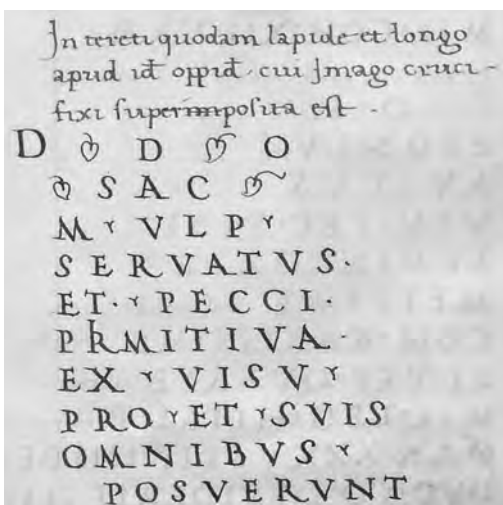 In tereti quodam lapide et longo
apud id oppid. cui Imago cruci-
fixi superimposita est.
D D O
SAC
M VLP
SERVATVS.
ET. PECCI.
PRMITIVA.
EX VISV
PRO ET SVIS
OMNIBVS
POSVERVNT